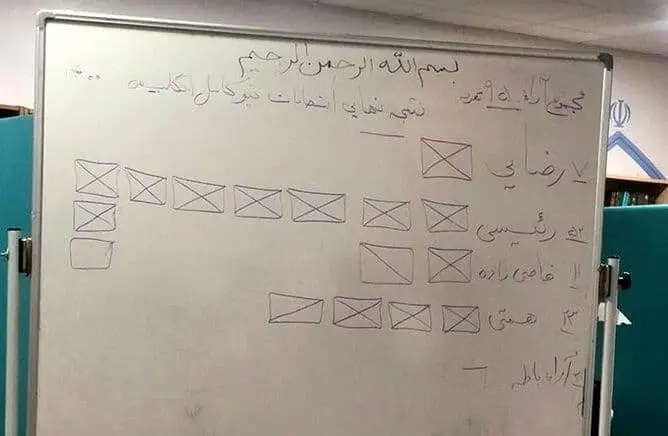 بسم الله الرحمن الرحیم
مجموع آراء ۹۵ نفر
نتیجه نهایی انتخابات نیوکاسل انگلیس ...
۷ رضایی
۵۲ رئیسی
۱۱ قاضی زاده
۲۳ همتی
۲ آراء باطله